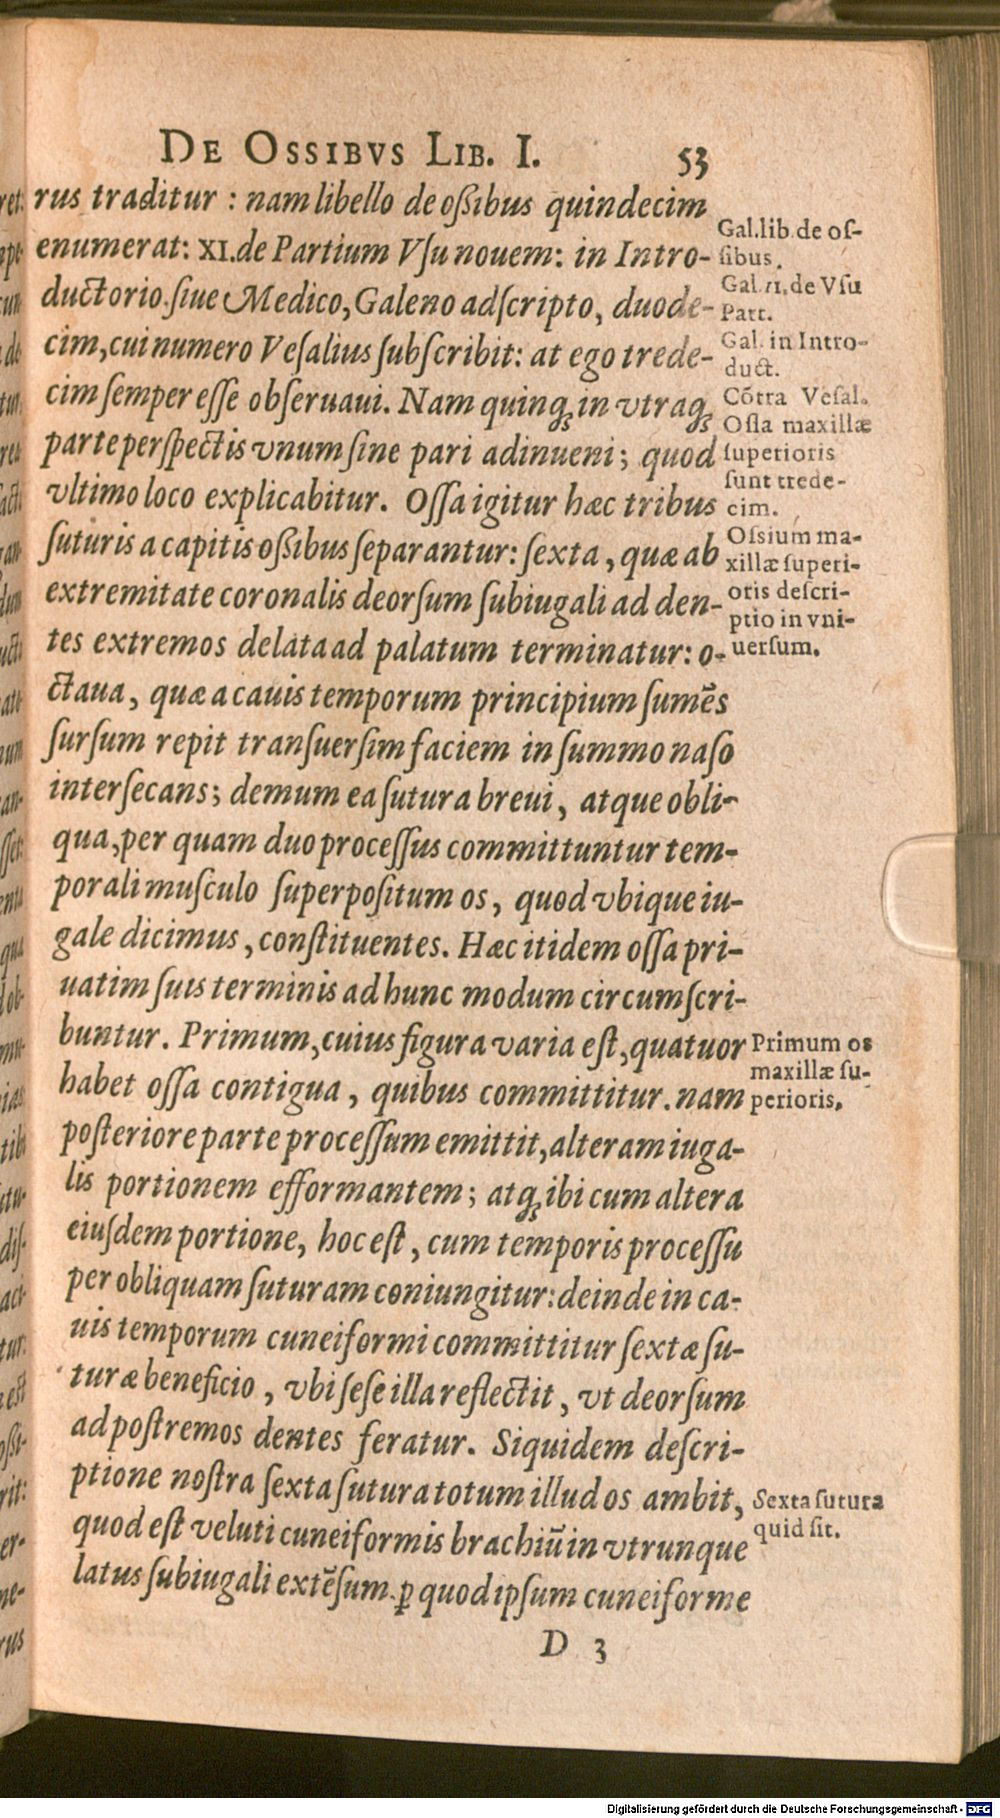 DE OSSIBVS LIB. I. 53
rus traditur : nam libello de oßibus quindecim
enumerat: XI. de Partium Vſu nouem: in Intro-
ductorio.ſiue Medico, Galeno adſcripto, duode-
cim, cui numero Veſalius ſubſcribit: at ego trede-
cim ſemper eſſe obſeruaui. Nam quinqꝫ in vtraqꝫ
parte perſpectis vnum ſine pari adinueni; quod
vltimo loco explicabitur. Oſſa igitur hæc tribus
ſuturis a capitis oßibus ſeparantur: ſexta, quæ ab
extremitate coronalis deorſum ſubiugali ad den-
tes extremos delata ad palatum terminatur: o-
ctaua, quæ a cauis temporum principium ſumẽs
ſurſum repit tranſuerſim faciem in ſummo naſo
interſecans; demum ea ſutura breui, atque obli-
qua, per quam duo proceſſus committuntur tem-
porali muſculo ſuperpoſitum os, quod vbique iu-
gale dicimus, conſtituentes. Hæc itidem oſſa pri-
uatim ſuis terminis ad hunc modum circumſcri-
buntur. Primum, cuius figura varia eſt, quatuor
habet oſſa contigua, quibus committitur. nam
poſteriore parte proceſſum emittit, alteram iuga-
lis portionem efformantem; atqꝫ ibi cum altera
eiuſdem portione, hoc eſt, cum temporis proceſſu
per obliquam ſuturam coniungitur: deinde in ca-
uis temporum cuneiformi committitur ſextæ ſu-
turæ beneficio, vbi ſeſe illa reflectit, vt deorſum
ad poſtremos dentes feratur. Siquidem deſcri-
ptione noſtra ſexta ſutura totum illud os ambit,
quod eſt veluti cuneiformis brachiũ in vtrunque
latus ſubiugali extẽſum. ꝑ quod ipſum cuneiforme
D 3
Gal. lib. de oſ-
ſibus.
Gal. 11. de Vſu
Part.
Gal. in Intro-
duct.
Cõtra Veſal.
Oſſa maxillæ
ſuperioris
ſunt trede-
cim.
Oſsium ma-
xillæ ſuperi-
oris deſcri-
ptio in vni-
uerſum.
Primum os
maxillæ ſu-
perioris.
Sexta ſutura
quid ſit.
Digitalisierung gefördert durch die Deutsche Forschungsgemeinschaft - DFG